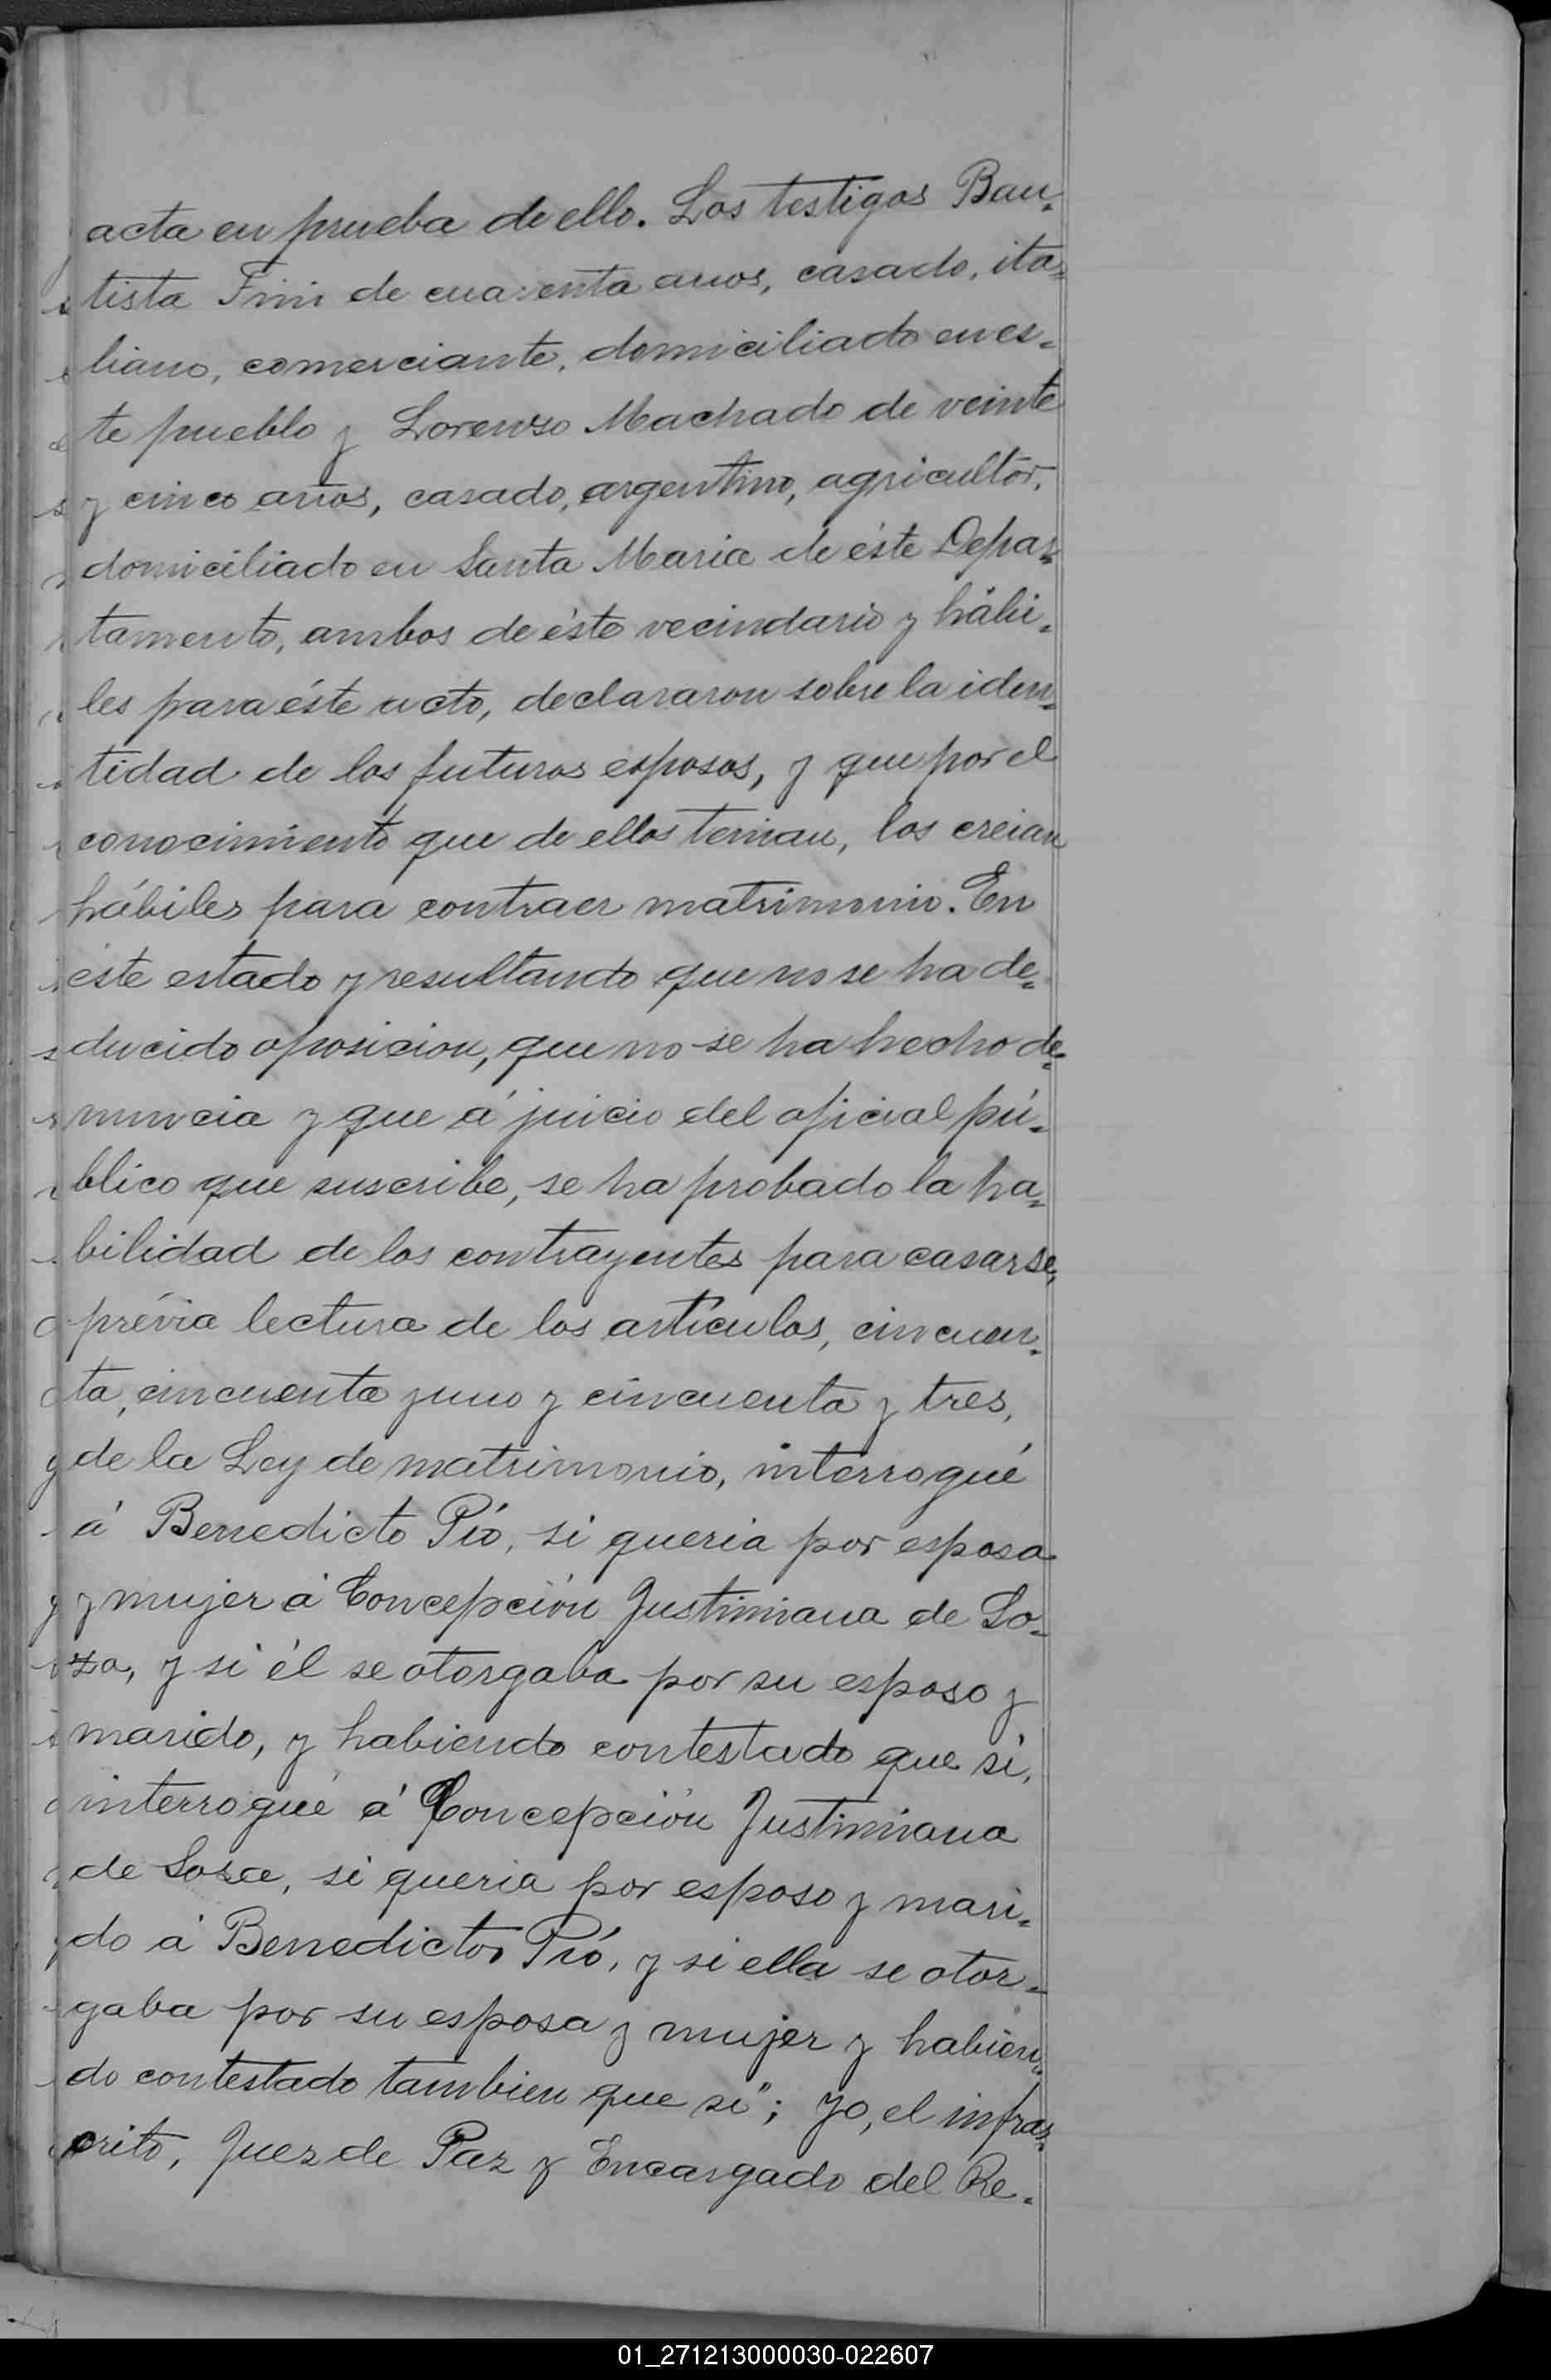 acta en prueba de ello. Los testigos Bau=
tista Fini de cuarenta anos, casado, ita=
liano, comerciante, domiciliado en es=
te pueblo y Lorenzo Machado de veinte
y cinco años, casado, argentino, agricultor,
domiciliado en Santa Maria de éste Depar=
tamento, ambos de éste vecindario y hábi=
les para éste acto, declararon sobre la iden=
tidad de los futuros esposos, y que por el
conocimiento que de ellos tenian, los creian
hábiles para contraer matrimonio. En
éste estado y resultando que no se ha de=
ducido oposicion, que no se ha hecho de=
nuncia y que á juicio del oficial pú=
blico que suscribe, se ha probado la ha=
bilidad de los contrayentes para casarse,
prévia lectura de los artículos, cincuen=
ta, cincuenta y uno y cincuenta y tres,
de la Ley de matrimonio, interrogué
á Benedicto Pío, si queria por esposa
y mujer á Concepción Justiniana de So=
za, y si él se otorgaba por su esposo y
marido, y habiendo contestado que si,
interrogué á Concepción Justiniana
de Sosa, si queria por esposo y mari=
do á Benedicto Pió, y si ella se otor=
gaba por su esposa y mujer y habien=
do contestado tambien que si"; Yo, el infras=
crito, Juez de Paz y Encargado del Re=
01_271213000030-022607